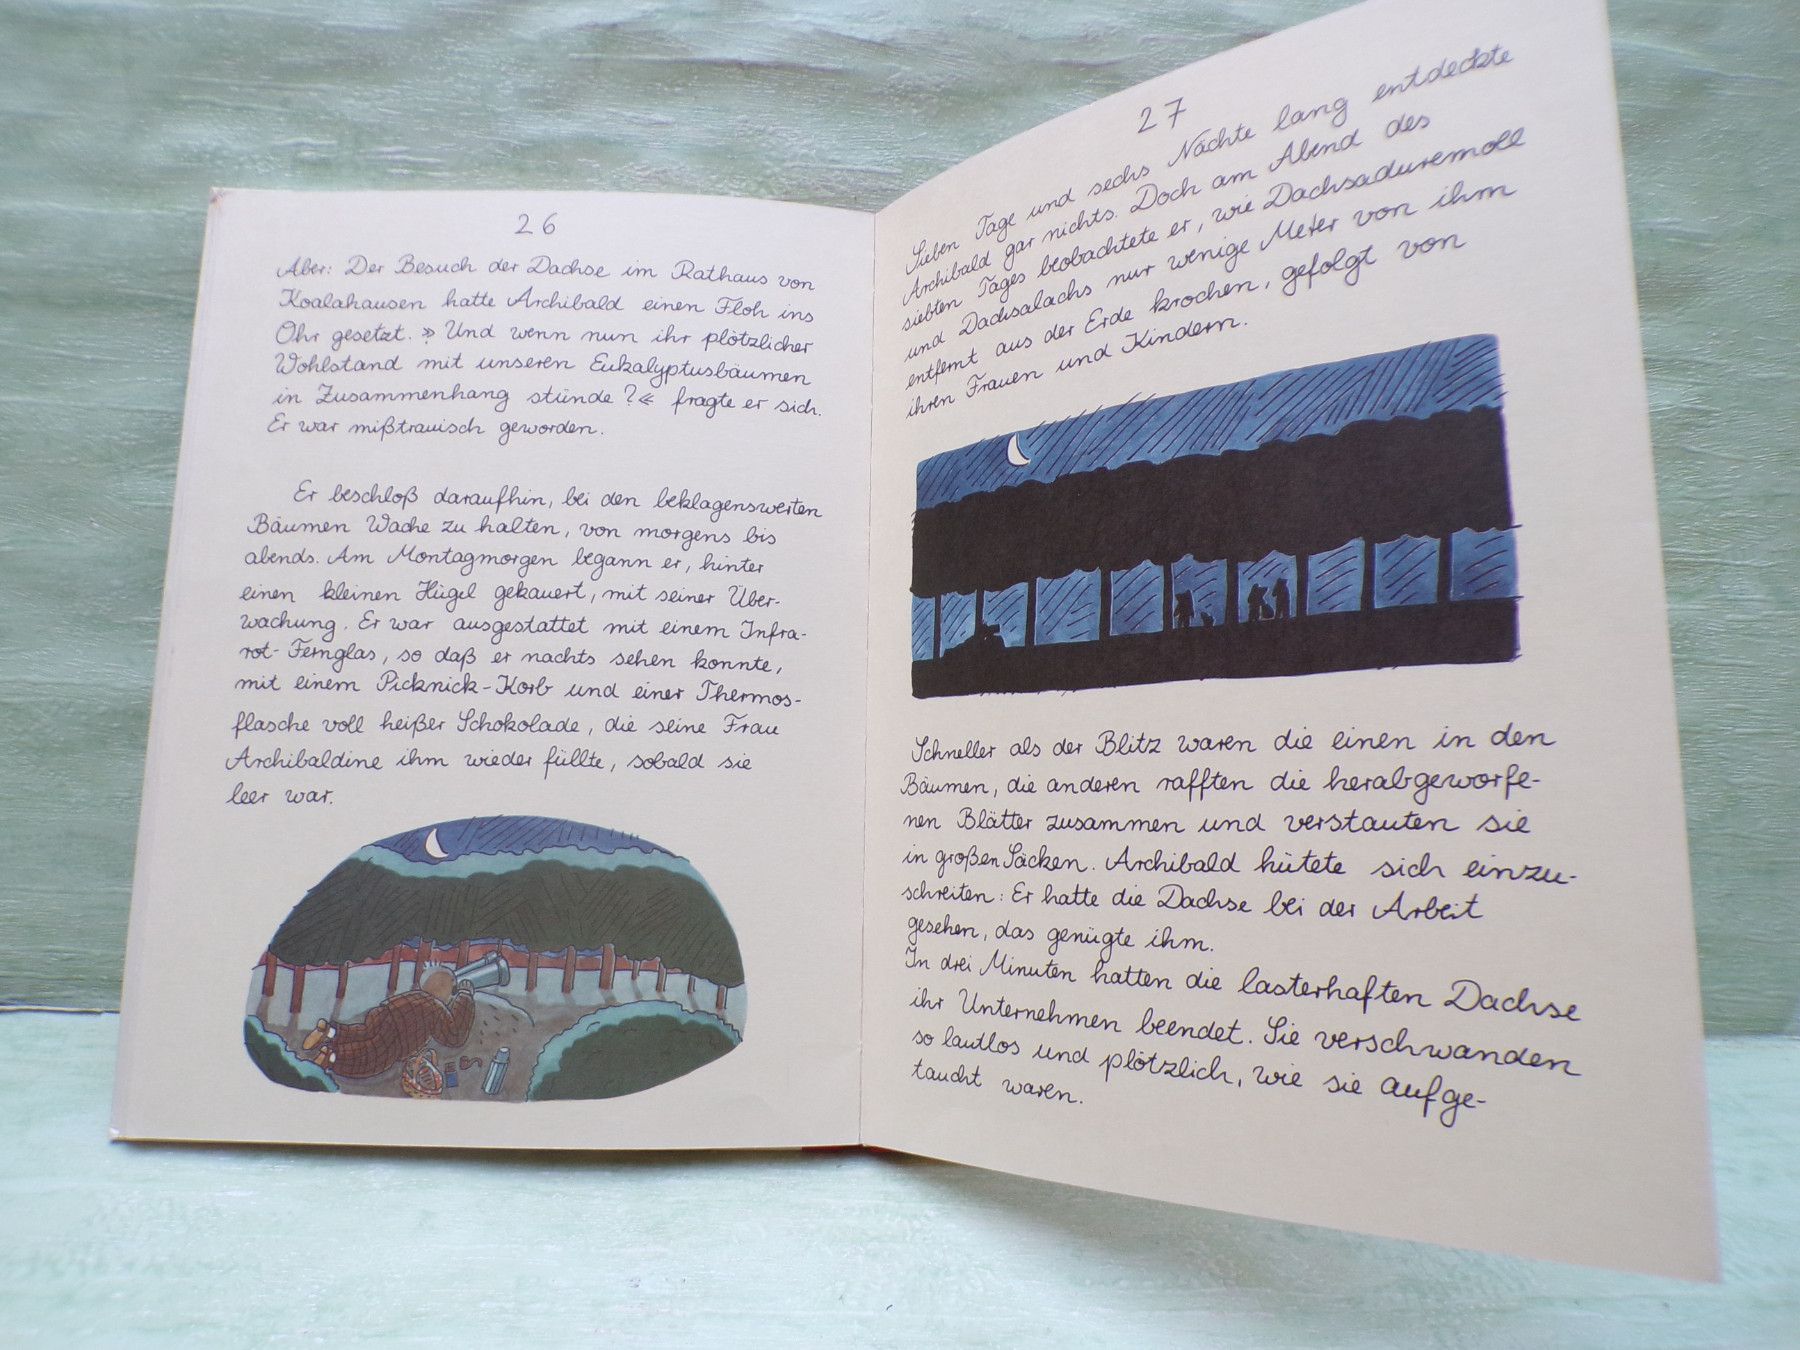 26
Aber: Der Besuch der Dachse im Rathaus von
Koalahausen hatte Archibald einen Floh ins
Ohr gesetzt. » Und wenn nun ihr plötzlicher
Wohlstand mit unseren Eukalyptusbäumen
in Zusammenhang stünde?« fragte er sich.
Er war mißtrauisch geworden.
Er beschloß daraufhin, bei den beklagenswerten
Bäumen Wache zu halten, von morgens bis
abends. Am Montagmorgen begann er, hinter
einen kleinen Hügel gekauert, mit seiner Über-
wachung. Er war ausgestattet mit einem Infra-
rot-Fernglas, so daß er nachts sehen konnte,
mit einem Picknick-Korb und einer Thermos-
flasche voll heißer Schokolade, die seine Frau
Archibaldine ihm wieder füllte, sobald sie
leer war.
27
Sieben Tage und sechs Nächte lang entdeckte
Archibald gar nichts. Doch am Abend des
siebten Tages beobachtete er, wie Dachsaduremoll
und Dachsalachs nur wenige Meter von ihm
entfernt aus der Erde krochen, gefolgt von
ihren Frauen und Kindern.
Schneller als der Blitz waren die einen in den
Bäumen, die anderen rafften die herabgeworfe-
nen Blätter zusammen und verstauten sie
in großen Säcken. Archibald hütete sich einzu-
schreiten: Er hatte die Dachse bei der Arbeit
gesehen, das genügte ihm.
In drei Minuten hatten die lasterhaften Dachse
ihr Unternehmen beendet. Sie verschwanden
so lautlos und plötzlich, wie sie aufge-
taucht waren.